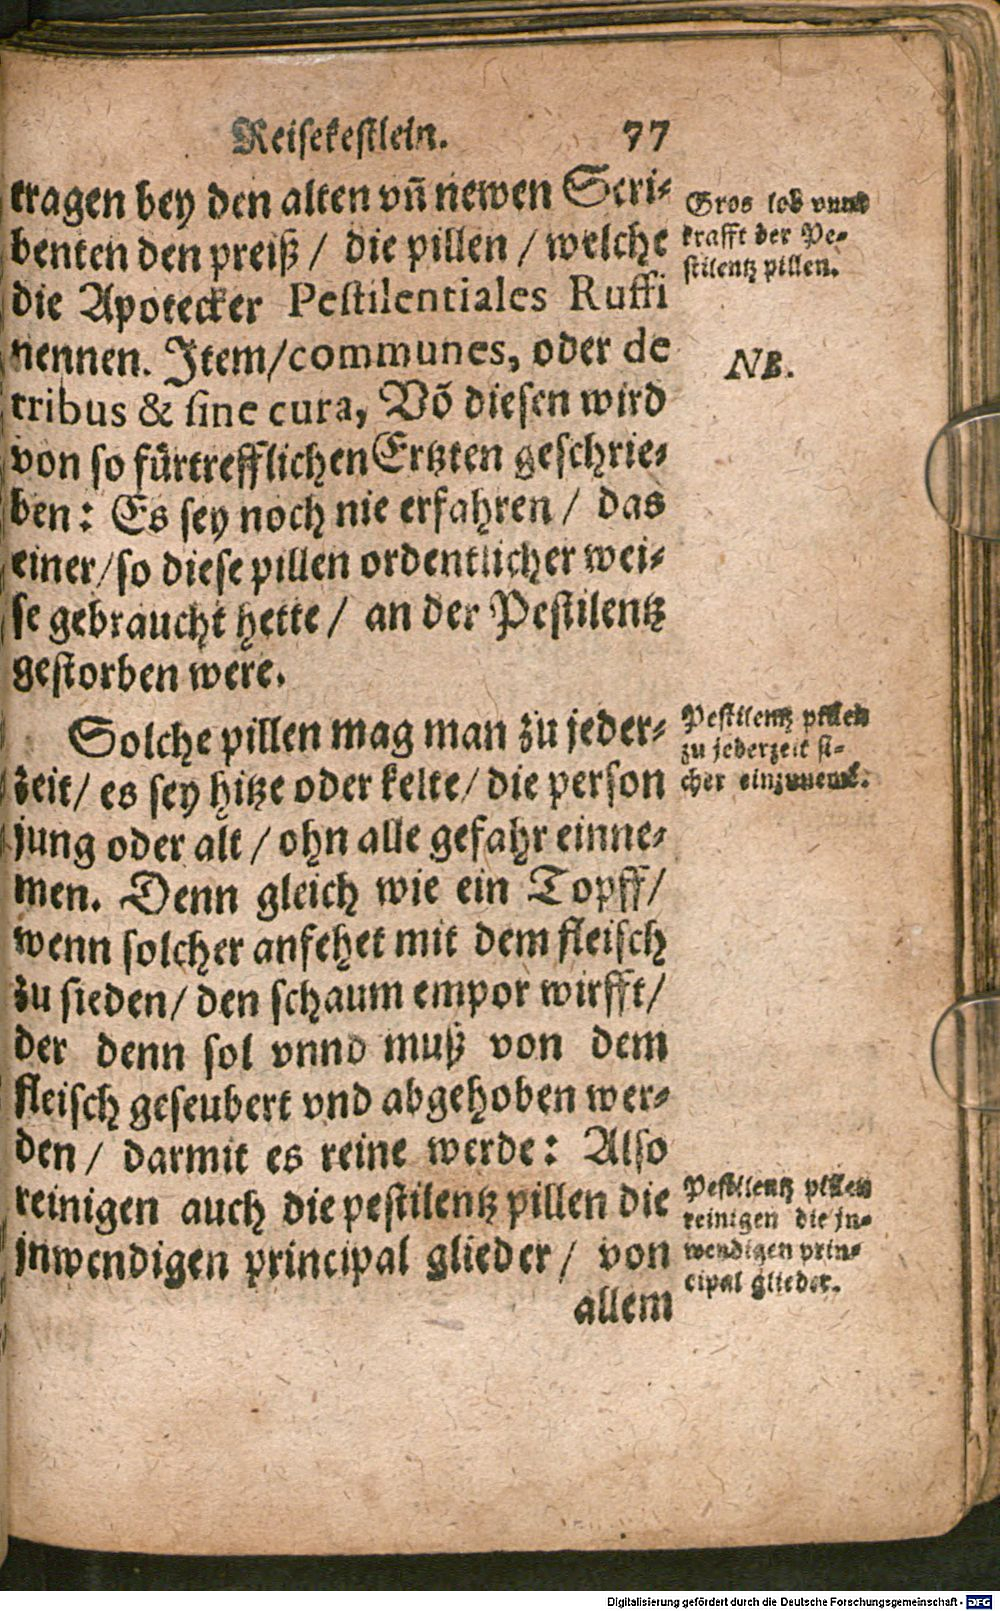 Reisekestlein. 77
tragen bey den alten vn̄ newen Scri-
benten den preiß / die pillen / welche
die Apotecker Pestilentiales Ruffi
nennen. Item/communes, oder de
tribus & sine cura, Võ diesen wird
von so fürtrefflichen Ertzten geschrie-
ben: Es sey noch nie erfahren / das
einer/so diese pillen ordentlicher wei-
se gebraucht hette / an der Pestilentz
gestorben were.
Solche pillen mag man zu jeder-
zeit/ es sey hitze oder kelte/ die person
jung oder alt / ohn alle gefahr einne-
men. Denn gleich wie ein Topff/
wenn solcher anfehet mit dem fleisch
zu sieden/ den schaum empor wirfft/
der denn sol vnnd muß von dem
fleisch geseubert vnd abgehoben wer-
den / darmit es reine werde: Also
reinigen auch die pestilentz pillen die
jnwendigen principal glieder / von
allem
Gros lob vnnd
krafft der Pe-
stilentz pillen.
NB.
Pestilentz pillen
zu jederzeit si-
cher einzunemē.
Pestilentz pillen
reinigen die jn-
wendigen prin-
cipal glieder.
Digitalisierung gefördert durch die Deutsche Forschungsgemeinschaft - DFG